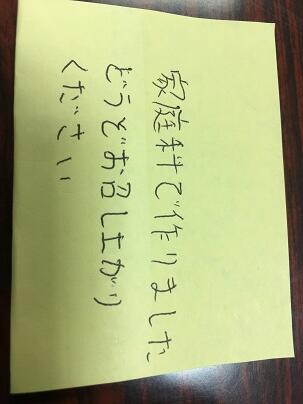 家庭科で作りました
どうどお召し上がり
ください